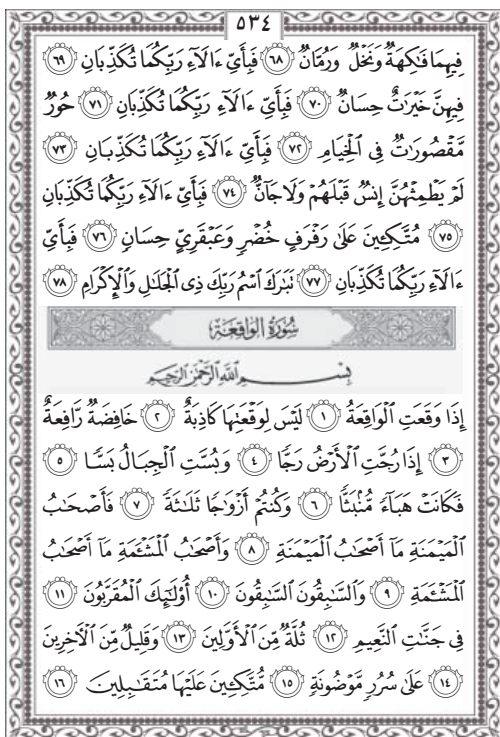 ٥٣٤
فِيهِمَا فَـٰكِهَةٌ وَنَخْلٌ وَرُمَّانٌ ٦٨ فَبِأَىِّ ءَالَآءِ رَبِّكُمَا تُكَذِّبَانِ ٦٩
فِيهِنَّ خَيْرَٰتٌ حِسَانٌ ٧٠ فَبِأَىِّ ءَالَآءِ رَبِّكُمَا تُكَذِّبَانِ ٧١ حُورٌ
مَّقْصُورَٰتٌ فِى ٱلْخِيَامِ ٧٢ فَبِأَىِّ ءَالَآءِ رَبِّكُمَا تُكَذِّبَانِ ٧٣
لَمْ يَطْمِثْهُنَّ إِنسٌ قَبْلَهُمْ وَلَا جَآنٌّ ٧٤ فَبِأَىِّ ءَالَآءِ رَبِّكُمَا تُكَذِّبَانِ
٧٥ مُتَّكِـِٔينَ عَلَىٰ رَفْرَفٍ خُضْرٍ وَعَبْقَرِىٍّ حِسَانٍ ٧٦ فَبِأَىِّ
ءَالَآءِ رَبِّكُمَا تُكَذِّبَانِ ٧٧ تَبَـٰرَكَ ٱسْمُ رَبِّكَ ذِى ٱلْجَلَـٰلِ وَٱلْإِكْرَامِ ٧٨
سُورَةُ الوَاقِعَة
بِسْمِ ٱللَّهِ ٱلرَّحْمَـٰنِ ٱلرَّحِيمِ
إِذَا وَقَعَتِ ٱلْوَاقِعَةُ ١ لَيْسَ لِوَقْعَتِهَا كَاذِبَةٌ ٢ خَافِضَةٌ رَّافِعَةٌ
٣ إِذَا رُجَّتِ ٱلْأَرْضُ رَجًّا ٤ وَبُسَّتِ ٱلْجِبَالُ بَسًّا ٥
فَكَانَتْ هَبَآءً مُّنۢبَثًّا ٦ وَكُنتُمْ أَزْوَٰجًا ثَلَـٰثَةً ٧ فَأَصْحَـٰبُ
ٱلْمَيْمَنَةِ مَآ أَصْحَـٰبُ ٱلْمَيْمَنَةِ ٨ وَأَصْحَـٰبُ ٱلْمَشْـَٔمَةِ مَآ أَصْحَـٰبُ
ٱلْمَشْـَٔمَةِ ٩ وَٱلسَّـٰبِقُونَ ٱلسَّـٰبِقُونَ ١٠ أُو۟لَـٰٓئِكَ ٱلْمُقَرَّبُونَ ١١
فِى جَنَّـٰتِ ٱلنَّعِيمِ ١٢ ثُلَّةٌ مِّنَ ٱلْأَوَّلِينَ ١٣ وَقَلِيلٌ مِّنَ ٱلْـَٔاخِرِينَ
١٤ عَلَىٰ سُرُرٍ مَّوْضُونَةٍ ١٥ مُّتَّكِـِٔينَ عَلَيْهَا مُتَقَـٰبِلِينَ ١٦